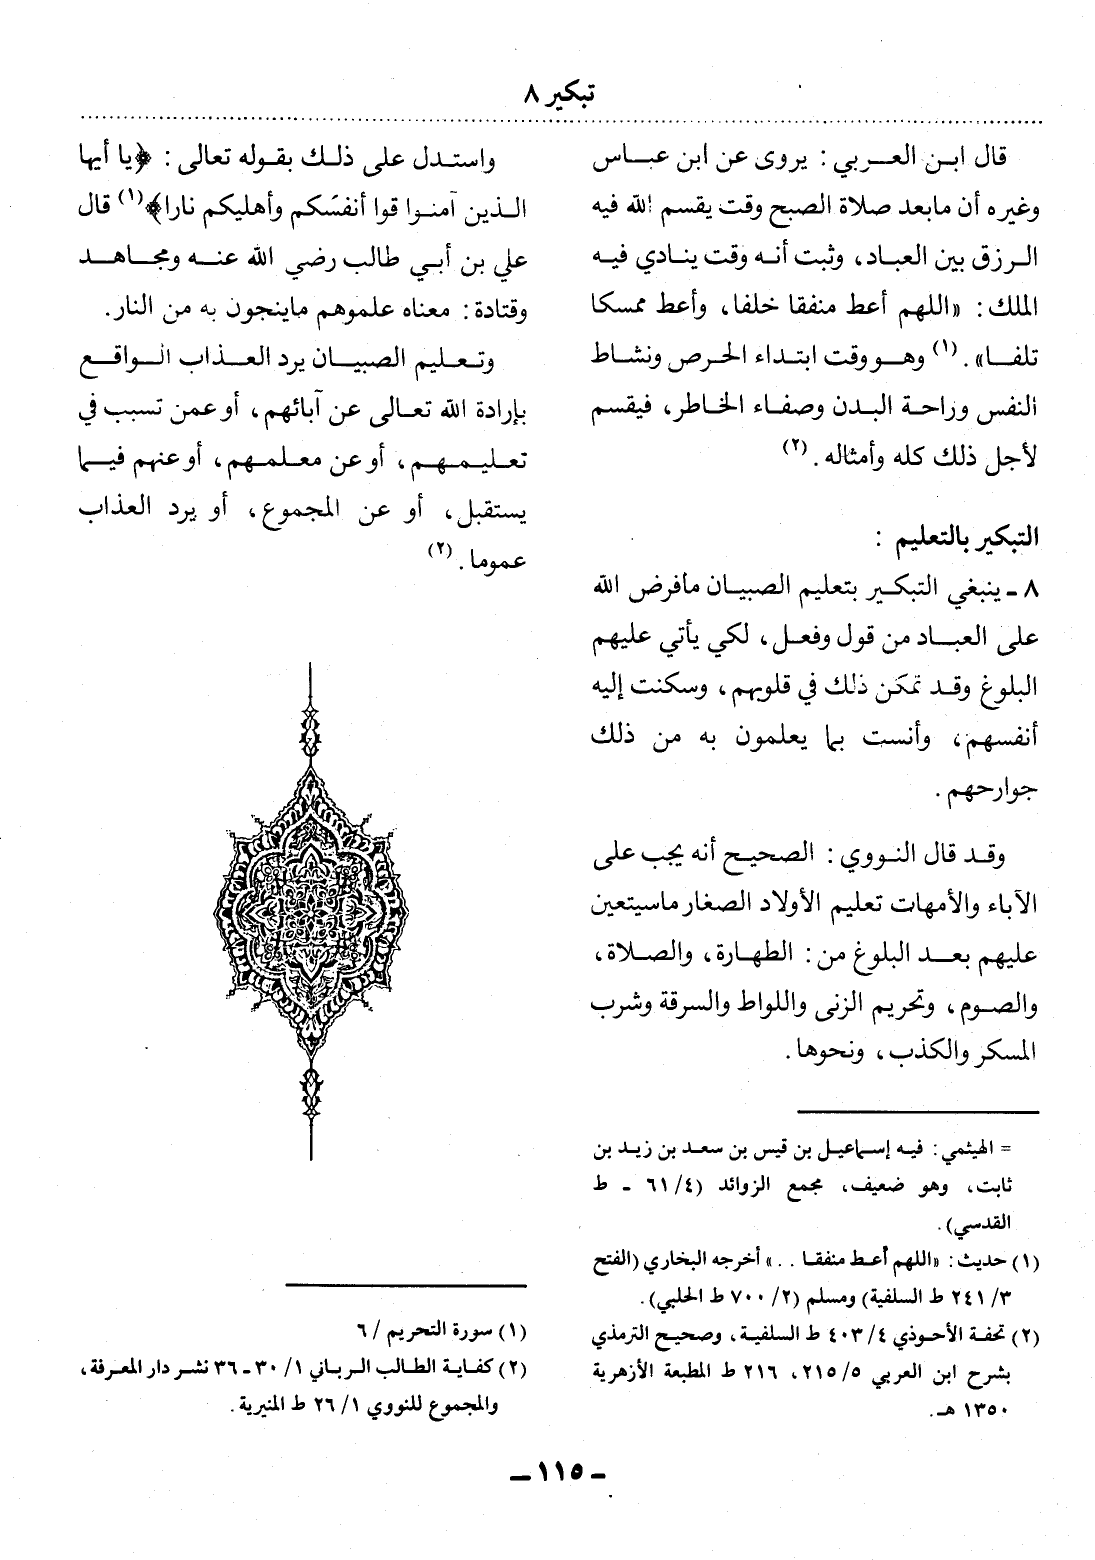 تبكير ٨
قال ابن العربي : يروى عن ابن عباس
وغيره أن مابعد صلاة الصبح وقت يقسم الله فيه
الرزق بين العباد، وثبت أنه وقت ينادي فيه
الملك : «اللهم أعط منفقا خلفا، وأعط ممسكا
تلفا» . (١) وهو وقت ابتداء الحرص ونشاط
النفس وراحة البدن وصفاء الخاطر، فيقسم
لأجل ذلك كله وأمثاله . (٢)
التبكير بالتعليم :
٨ ـ ينبغي التبكير بتعليم الصبيان مافرض الله
على العباد من قول وفعل، لكي يأتي عليهم
البلوغ وقد تمكن ذلك في قلوبهم، وسكنت إليه
أنفسهم، وأنست بما يعلمون به من ذلك
جوارحهم .
وقد قال النووي : الصحيح أنه يجب على
الآباء والأمهات تعليم الأولاد الصغار ماسيتعين
عليهم بعد البلوغ من : الطهارة، والصلاة،
والصوم، وتحريم الزنى واللواط والسرقة وشرب
المسكر والكذب، ونحوها .
= الهيثمي : فيه إسماعيل بن قيس بن سعد بن زيد بن
ثابت، وهو ضعيف، مجمع الزوائد (٤/ ٦١ ـ ط
القدسي) .
(١) حديث : «اللهم أعط منفقا . . » أخرجه البخاري (الفتح
٣/ ٢٤١ ط السلفية) ومسلم (٢/ ٧٠٠ ط الحلبي) .
(٢) تحفة الأحوذي ٤/ ٤٠٣ ط السلفية، وصحيح الترمذي
بشرح ابن العربي ٥/ ٢١٥، ٢١٦ ط المطبعة الأزهرية
١٣٥٠ هـ .
واستدل على ذلك بقوله تعالى : ﴿يا أيها
الذين آمنوا قوا أنفسَكم وأهليكم نارا﴾(١) قال
علي بن أبي طالب رضي الله عنه ومجاهد
وقتادة : معناه علموهم ماينجون به من النار .
وتعليم الصبيان يرد العذاب الواقع
بإرادة الله تعالى عن آبائهم، أو عمن تسبب في
تعليمهم، أو عن معلمهم، أو عنهم فيما
يستقبل، أو عن المجموع، أو يرد العذاب
عموما . (٢)
(١) سورة التحريم / ٦
(٢) كفاية الطالب الرباني ١/ ٣٠ ـ ٣٦ نشر دار المعرفة،
والمجموع للنووي ١/ ٢٦ ط المنيرية .
ـ ١١٥ ـ